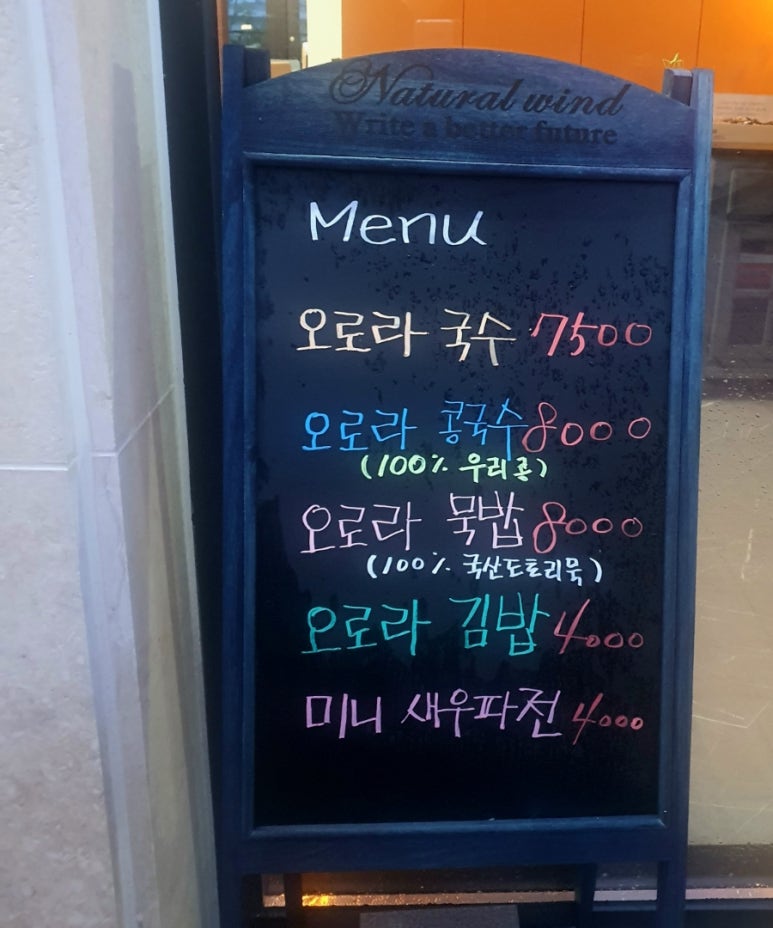 Natural wind
Write a better future
Menu
오로라 국수 7500
오로라 콩국수 8000
(100% 우리콩)
오로라 묵밥 8000
(100% 국산도토리묵)
오로라 김밥 4000
미니 새우파전 4000